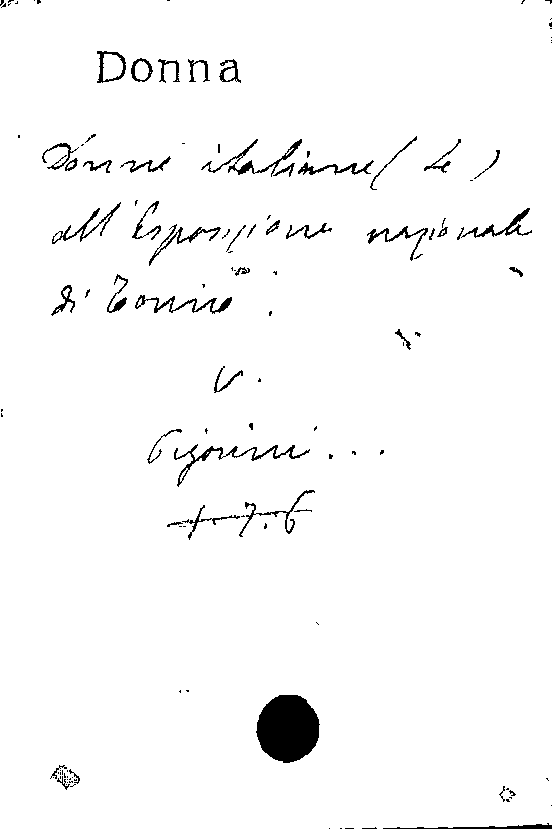 Donna
Donne italiane (Le)
all'Esposizione nazionale
di Torino.
v.
Pigorini...
1.7.6